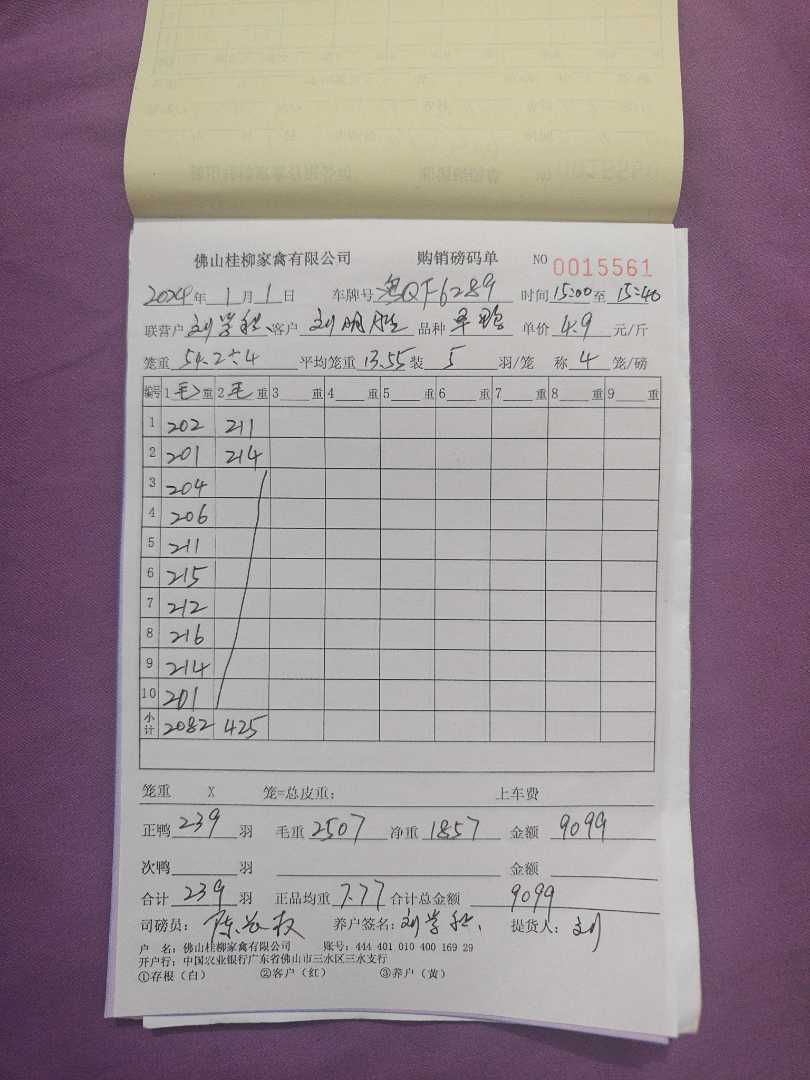 佛山桂柳家禽有限公司 购销磅码单 NO 0015561
2024年 1月 1日 车牌号 粤QF6289 时间 15:00至 15:40
联营户 刘学 客户 刘明胜 品种 单价 4.9 元/斤
笼重 54.2÷4 平均笼重 13.55 装 5 羽/笼 称 4 笼/磅
编号 1 毛 重 2 毛 重 3 重 4 重 5 重 6 重 7 重 8 重 9 重
1 202 211
2 201 214
3 204
4 206
5 211
6 215
7 212
8 216
9 214
10 201
小计 2082 425
笼重 X 笼=总皮重: 上车费
正鸭 239 羽 毛重 2507 净重 1857 金额 9099
次鸭 羽 金额
合计 239 羽 正品均重 7.77 合计总金额 9099
司磅员: 陈 权 养户签名: 刘学 提货人: 刘
户 名: 佛山桂柳家禽有限公司 账号: 444 401 010 400 169 29
开户行: 中国农业银行广东省佛山市三水区三水支行
①存根(白) ②客户(红) ③养户(黄)